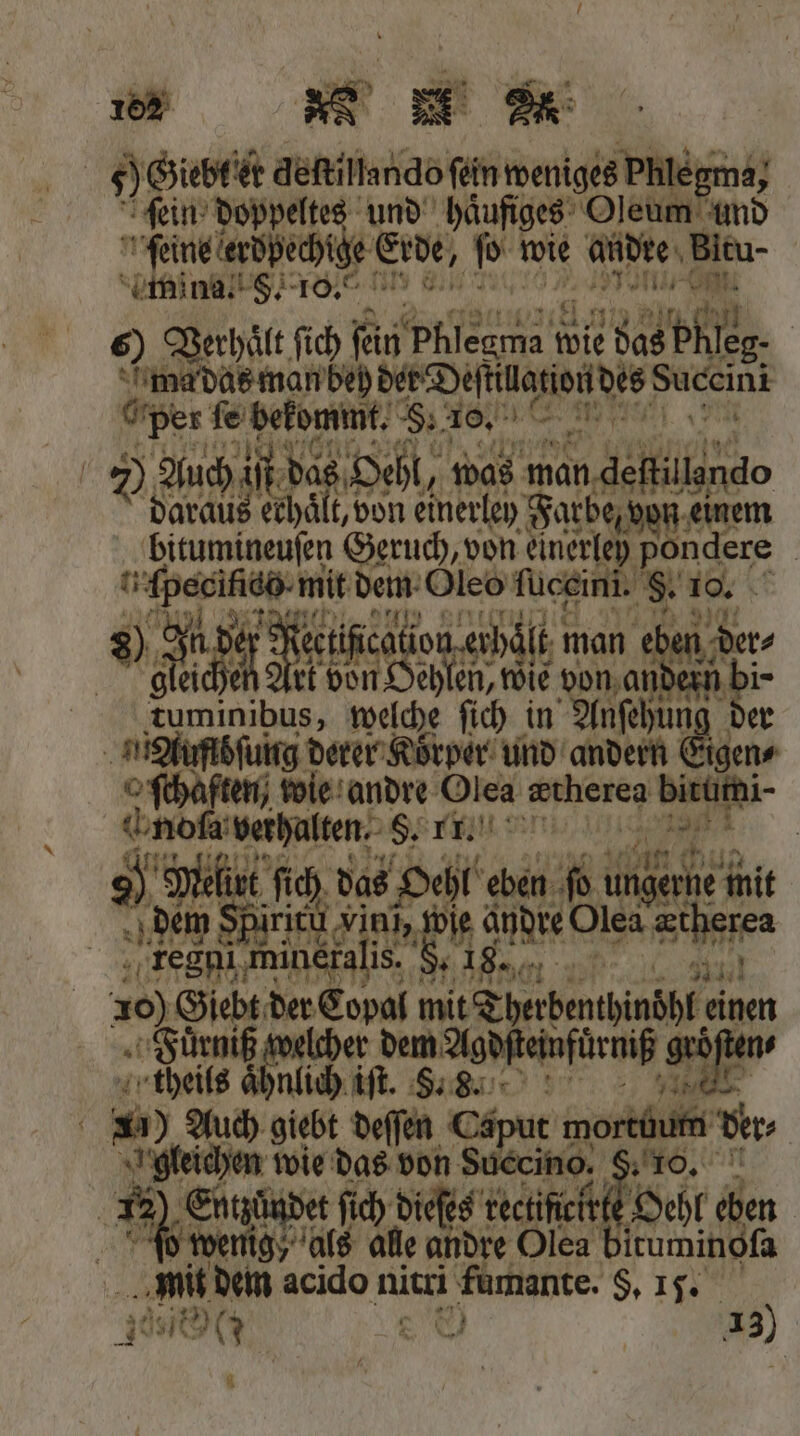 102
5) Giebt er deſtillando ſein weniges Phlegma,
ſein doppeltes und haͤufiges Oleum und
ſeine erdpechige Erde, ſo wie andre Bitu-
mina. §. 10.
6) Verhaͤlt ſich ſein Phlegma wie das Phleg-
ma das man bey der Deſtillation des Succini
per ſe bekommt. §. 10.
7) Auch iſt das Oehl, was man deſtillando
daraus erhaͤlt, von einerley Farbe, von einem
bitumineuſen Geruch, von einerley pondere
ſpecifico mit dem Oleo ſuccini. §. 10.
8) In der Rectification erhaͤlt man eben der-
gleichen Art von Oehlen, wie von andern bi-
tuminibus, welche ſich in Anſehung der
Aufloͤſung derer Koͤrper und andern Eigen-
ſchaften, wie andre Olea ætherea bitumi-
noſa verhalten. §. 11.
9) Melirt ſich das Oehl eben ſo ungerne mit
dem Spiritu vini, wie andre Olea ætherea
regni mineralis. §. 18.
10) Giebt der Copal mit Therbenthinoͤhl einen
Fuͤrniß welcher dem Agdſteinfuͤrniß groͤſten-
theils aͤhnlich iſt. §. 8.
11) Auch giebt deſſen Caput mortuum der-
gleichen wie das von Succino. §. 10.
12) Entzuͤndet ſich dieſes rectificirte Oehl eben
ſo wenig, als alle andre Olea bituminoſa
mit dem acido nitri fumante. §. 15.
13)